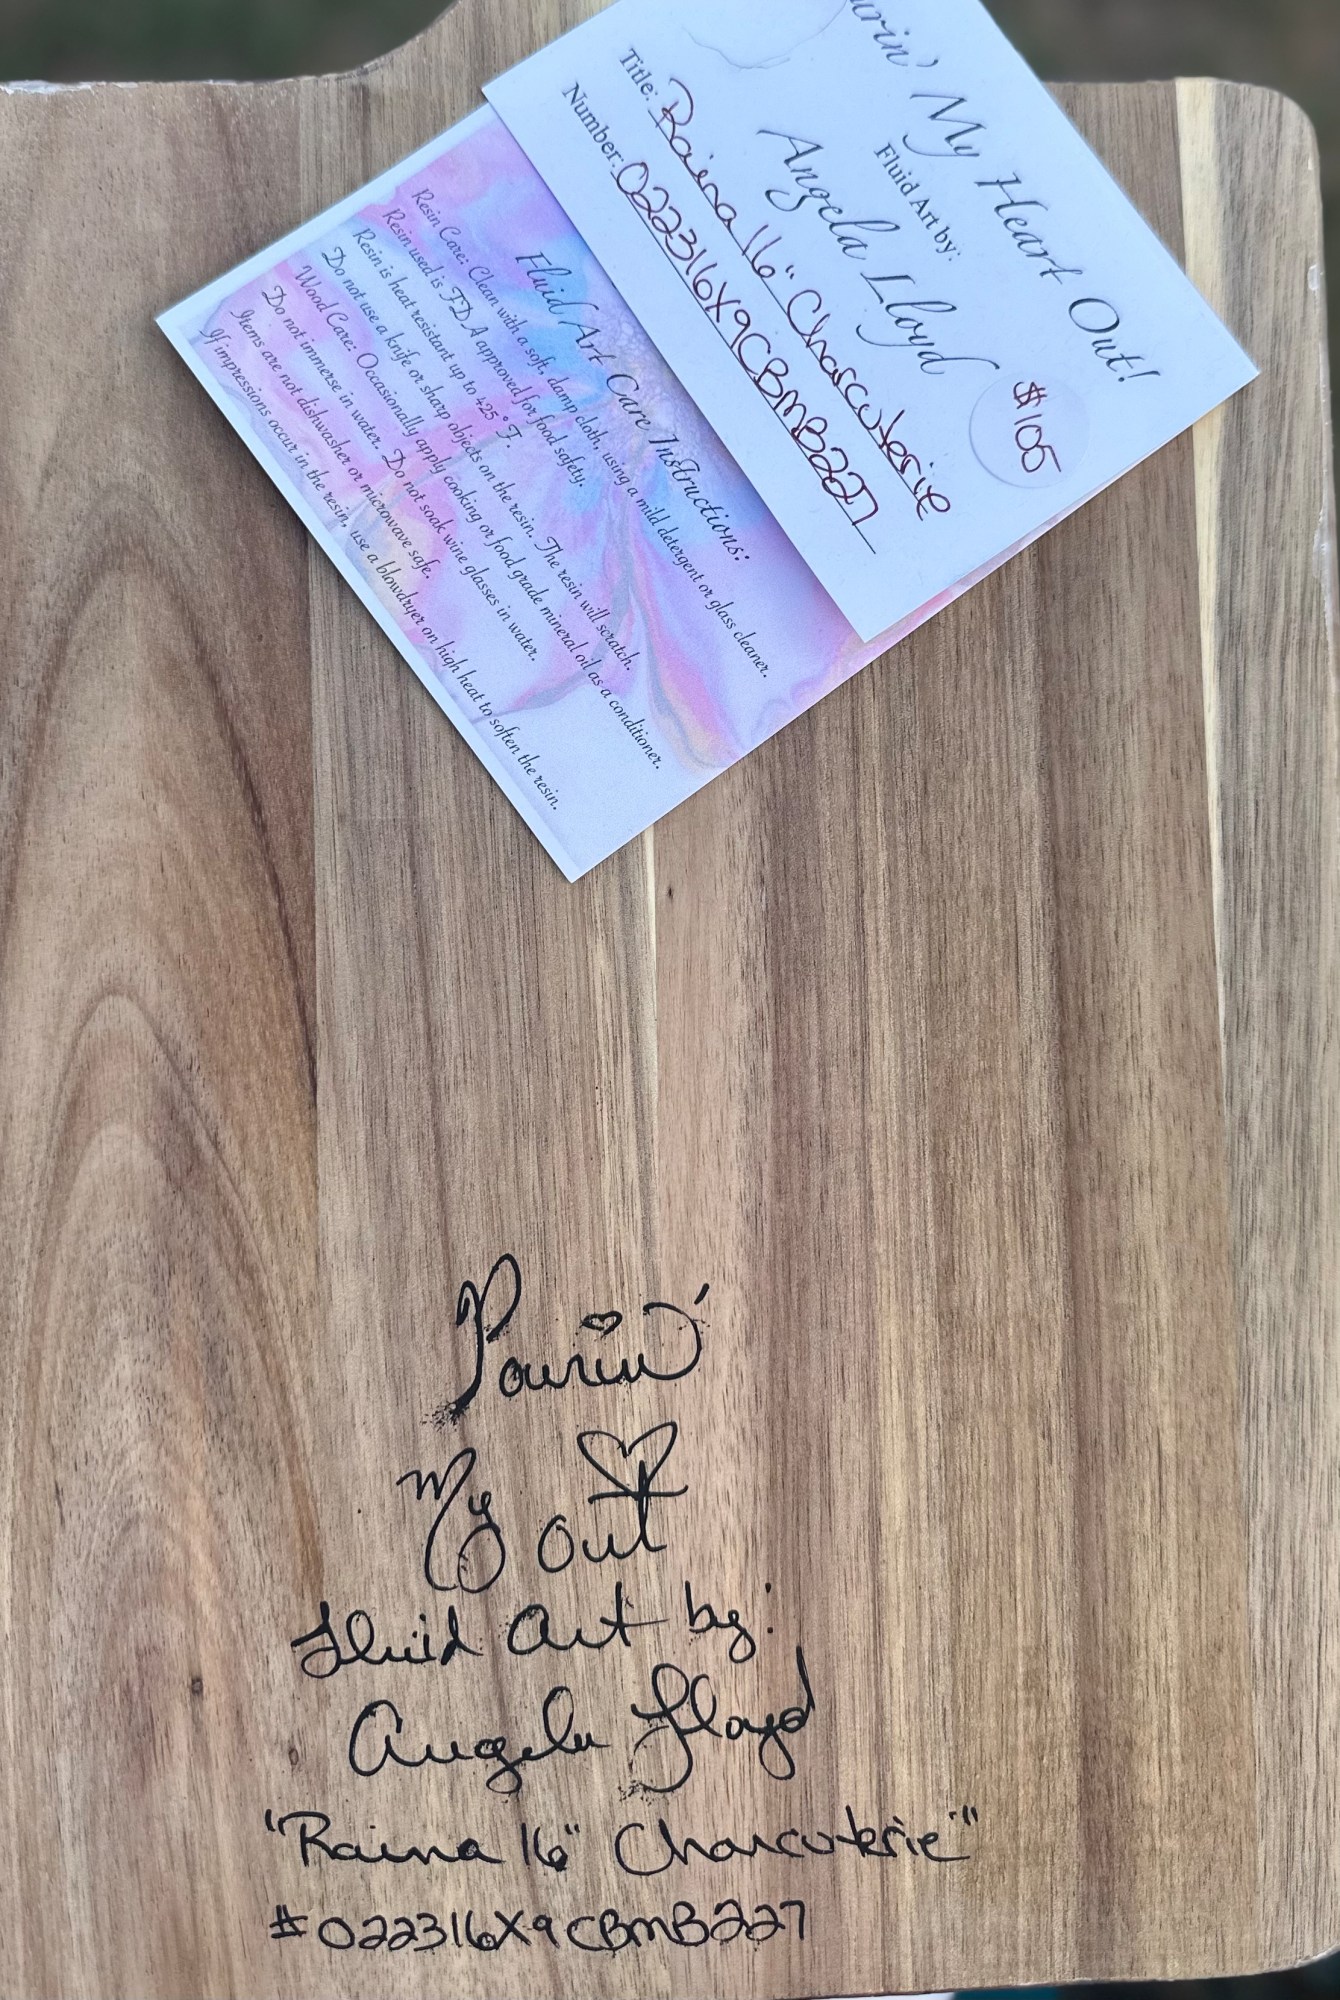 My Heart Out!
Fluid Art by:
Angela Lloyd
Title: Raina 16" Charcuterie
Number: 022316X9CBMB227
$105
Fluid Art Care Instructions:
Resin Care: Clean with a soft, damp cloth, using a mild detergent or glass cleaner.
Resin used is FDA approved for food safety.
Resin is heat resistant up to 425° F.
Do not use a knife or sharp objects on the resin. The resin will scratch.
Wood Care: Occasionally apply cooking or food grade mineral oil as a conditioner.
Do not immerse in water. Do not soak wine glasses in water.
Items are not dishwasher or microwave safe.
If impressions occur in the resin, use a blowdryer on high heat to soften the resin.
Pourin'
My
out
Fluid Art by:
Angela Lloyd
"Raina 16" Charcuterie"
#022316X9CBMB227